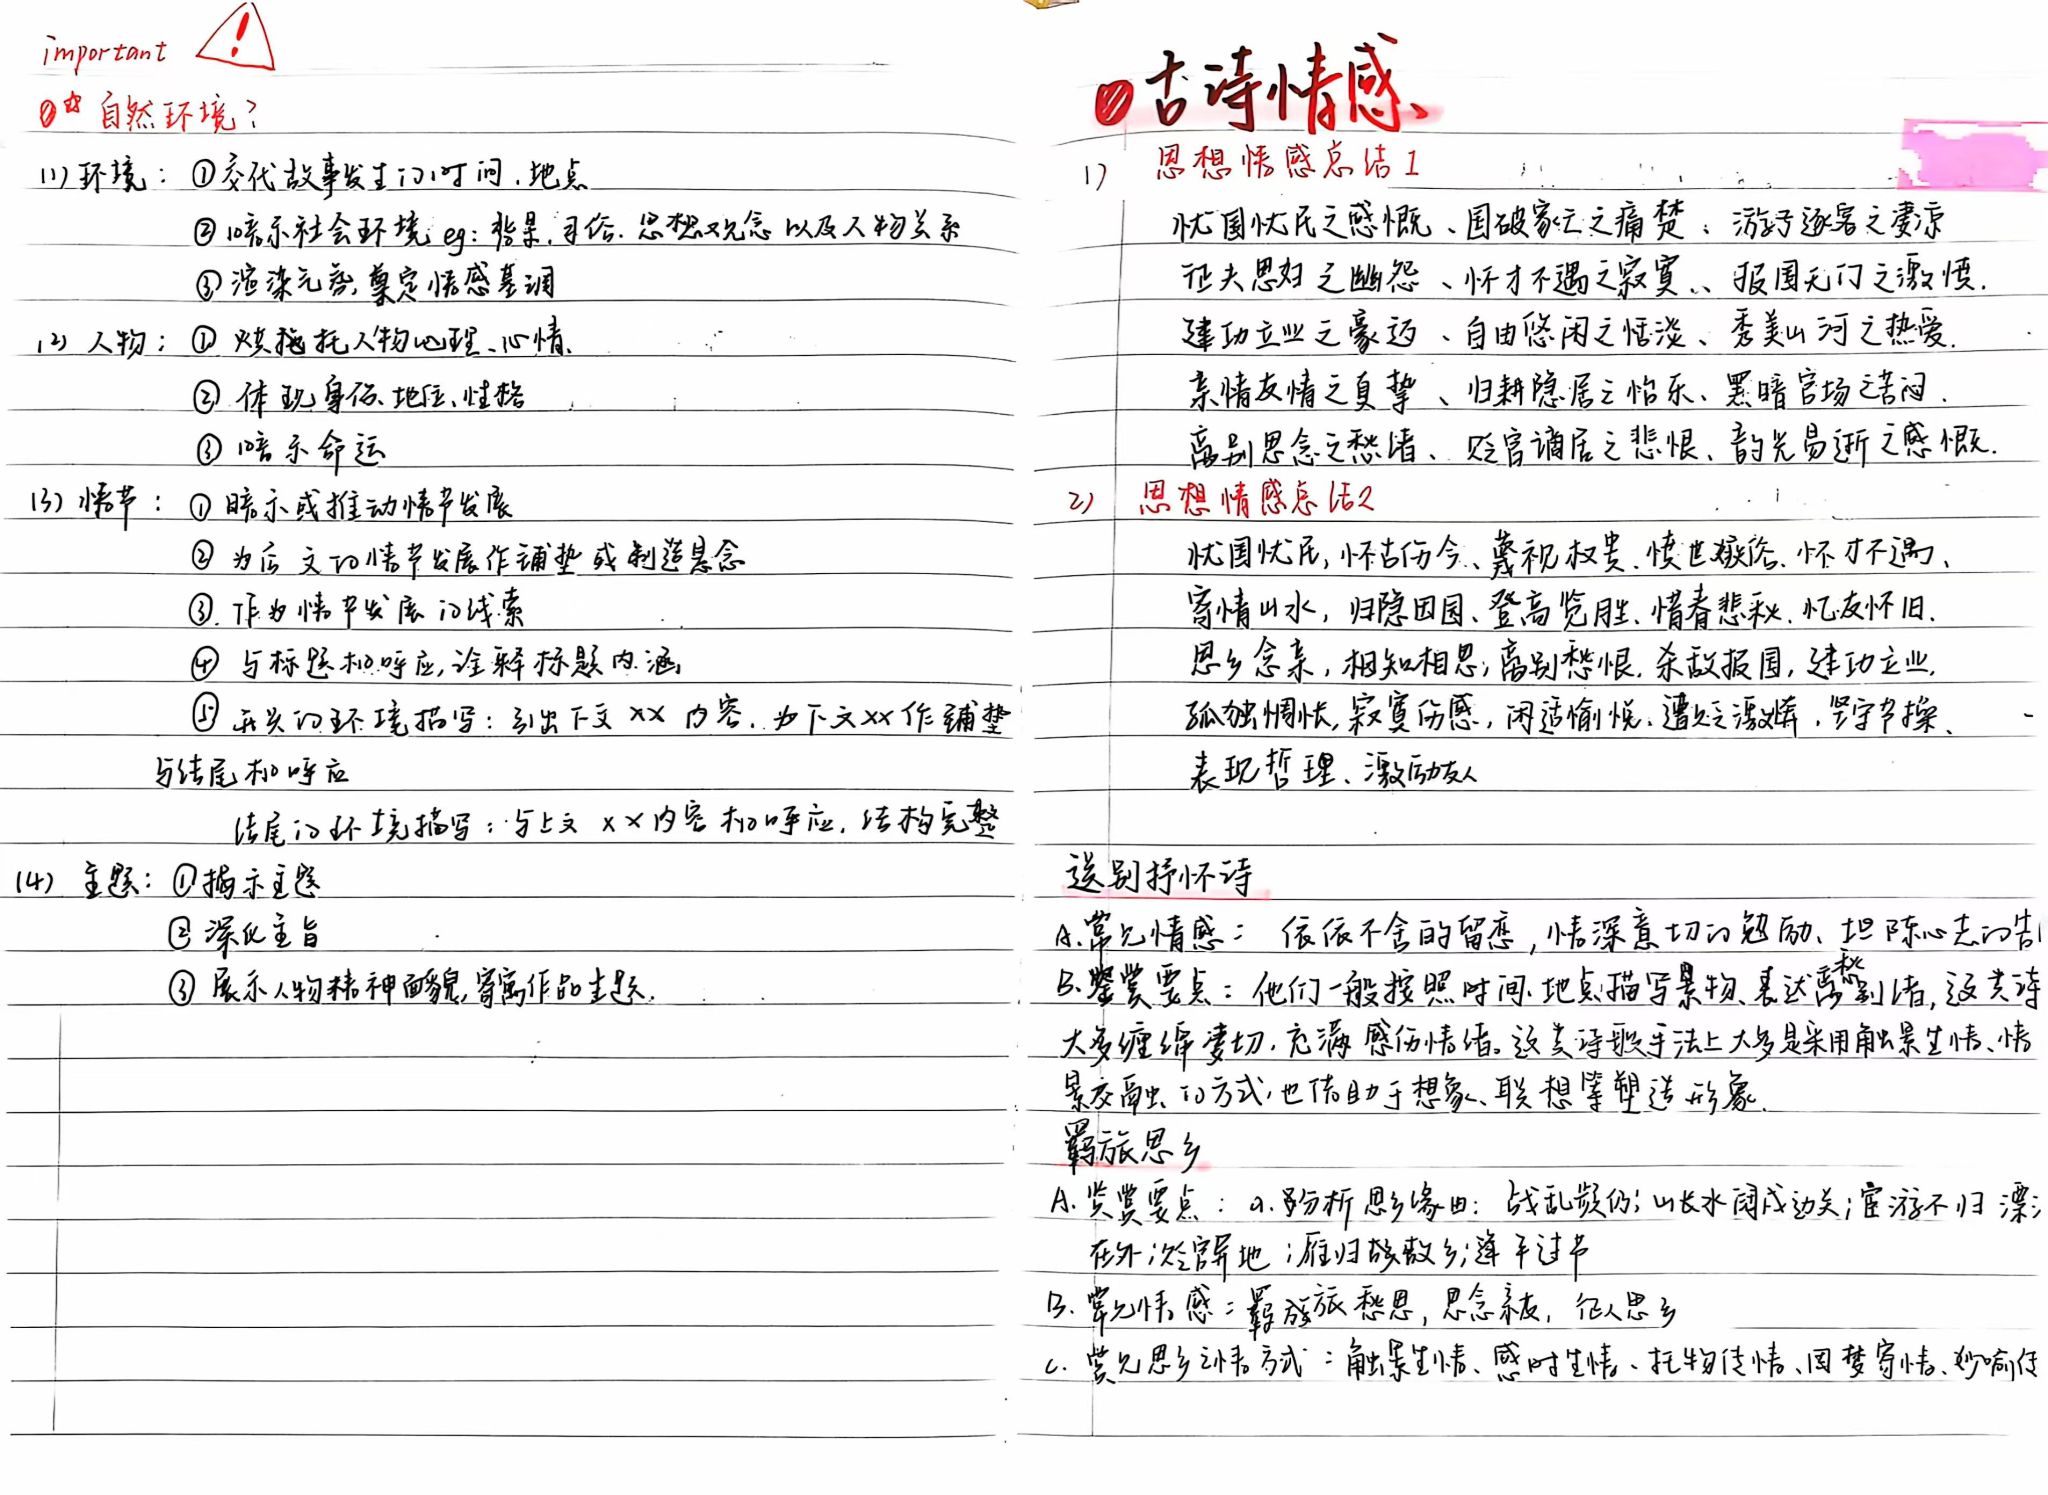 important !
自然环境?
(1) 环境: ①交代故事发生的时间、地点
②暗示社会环境 eg: 背景、习俗、思想观念以及人物关系
③渲染气氛,奠定情感基调
(2) 人物: ①烘托人物心理、心情、
②体现身份、地位、性格
③暗示命运
(3) 情节: ①暗示或推动情节发展
②为后文的情节发展作铺垫或制造悬念
③作为情节发展的线索
④与标题相呼应,诠释标题内涵
⑤开头的环境描写: 引出下文××内容、为下文××作铺垫
与结尾相呼应
结尾的环境描写: 与上文××内容相呼应,结构完整
(4) 主题: ①揭示主题
②深化主旨
③展示人物精神面貌,寄寓作品主题.
古诗情感
1) 思想情感总结1
忧国忧民之感慨、国破家亡之痛楚、游子逐客之凄凉
征夫思妇之幽怨、怀才不遇之寂寞、报国无门之激愤.
建功立业之豪迈、自由悠闲之恬淡、秀美山河之热爱.
亲情友情之真挚、归耕隐居之怡乐、黑暗官场之苦闷.
离别思念之愁绪、贬官谪居之悲恨、韵光易逝之感慨.
2) 思想情感总结2
忧国忧民,怀古伤今、蔑视权贵、愤世嫉俗、怀才不遇、
寄情山水,归隐田园、登高览胜、惜春悲秋、忆友怀旧.
思乡念亲,相知相思,离别愁恨.杀敌报国,建功立业.
孤独惆怅,寂寞伤感,闲适愉悦、遭贬激愤,坚守节操、
表现哲理、激励友人
送别抒怀诗
A.常见情感: 依依不舍的留恋,情深意切的勉励、坦陈心志的告
B.鉴赏要点: 他们一般按照时间、地点描写景物、表达离愁别绪,这类诗
大多缠绵凄切,充满感伤情绪。这类诗歌手法上大多是采用触景生情、情
景交融的方式,也借助于想象、联想等塑造形象.
羁旅思乡
A.鉴赏要点: a.分析思乡缘由: 战乱频仍;山长水阔戍边关;宦游不归 漂
在外;贬官异地;雁归故乡;逢年过节
B.常见情感: 羁旅愁思,思念亲友,征人思乡
C.常见思乡之情方式: 触景生情、感时生情、托物传情、因梦寄情、妙喻传